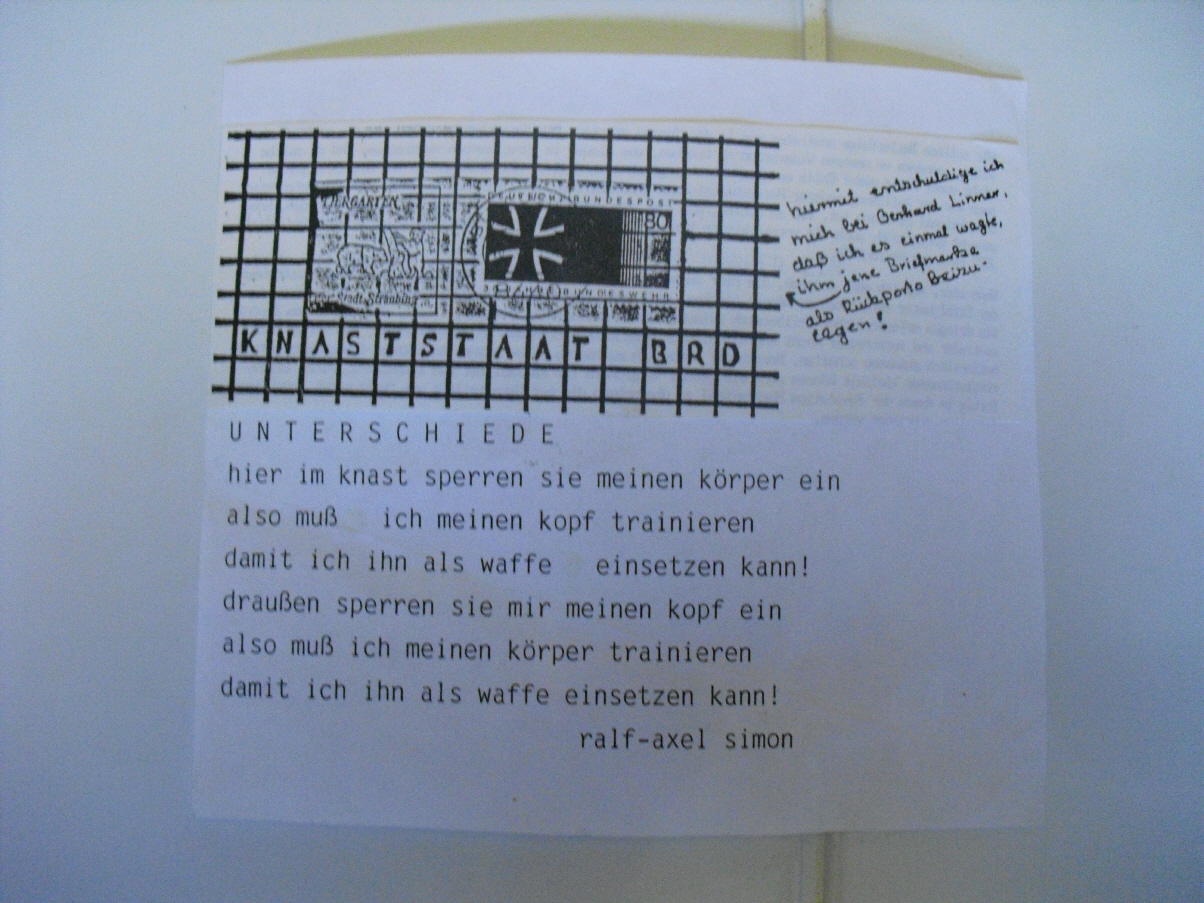 TIERGARTEN
DEUTSCHE BUNDESPOST
80
Stadt Straubing
JAHRE BUNDESWEHR
KNASTSTAAT BRD
hiermit entschuldige ich
mich bei Gerhard Linner,
daß ich es einmal wagte,
ihm jene Briefmarke
als Rückporto beizu-
legen!
UNTERSCHIEDE
hier im knast sperren sie meinen körper ein
also muß ich meinen kopf trainieren
damit ich ihn als waffe einsetzen kann!
draußen sperren sie mir meinen kopf ein
also muß ich meinen körper trainieren
damit ich ihn als waffe einsetzen kann!
ralf-axel simon